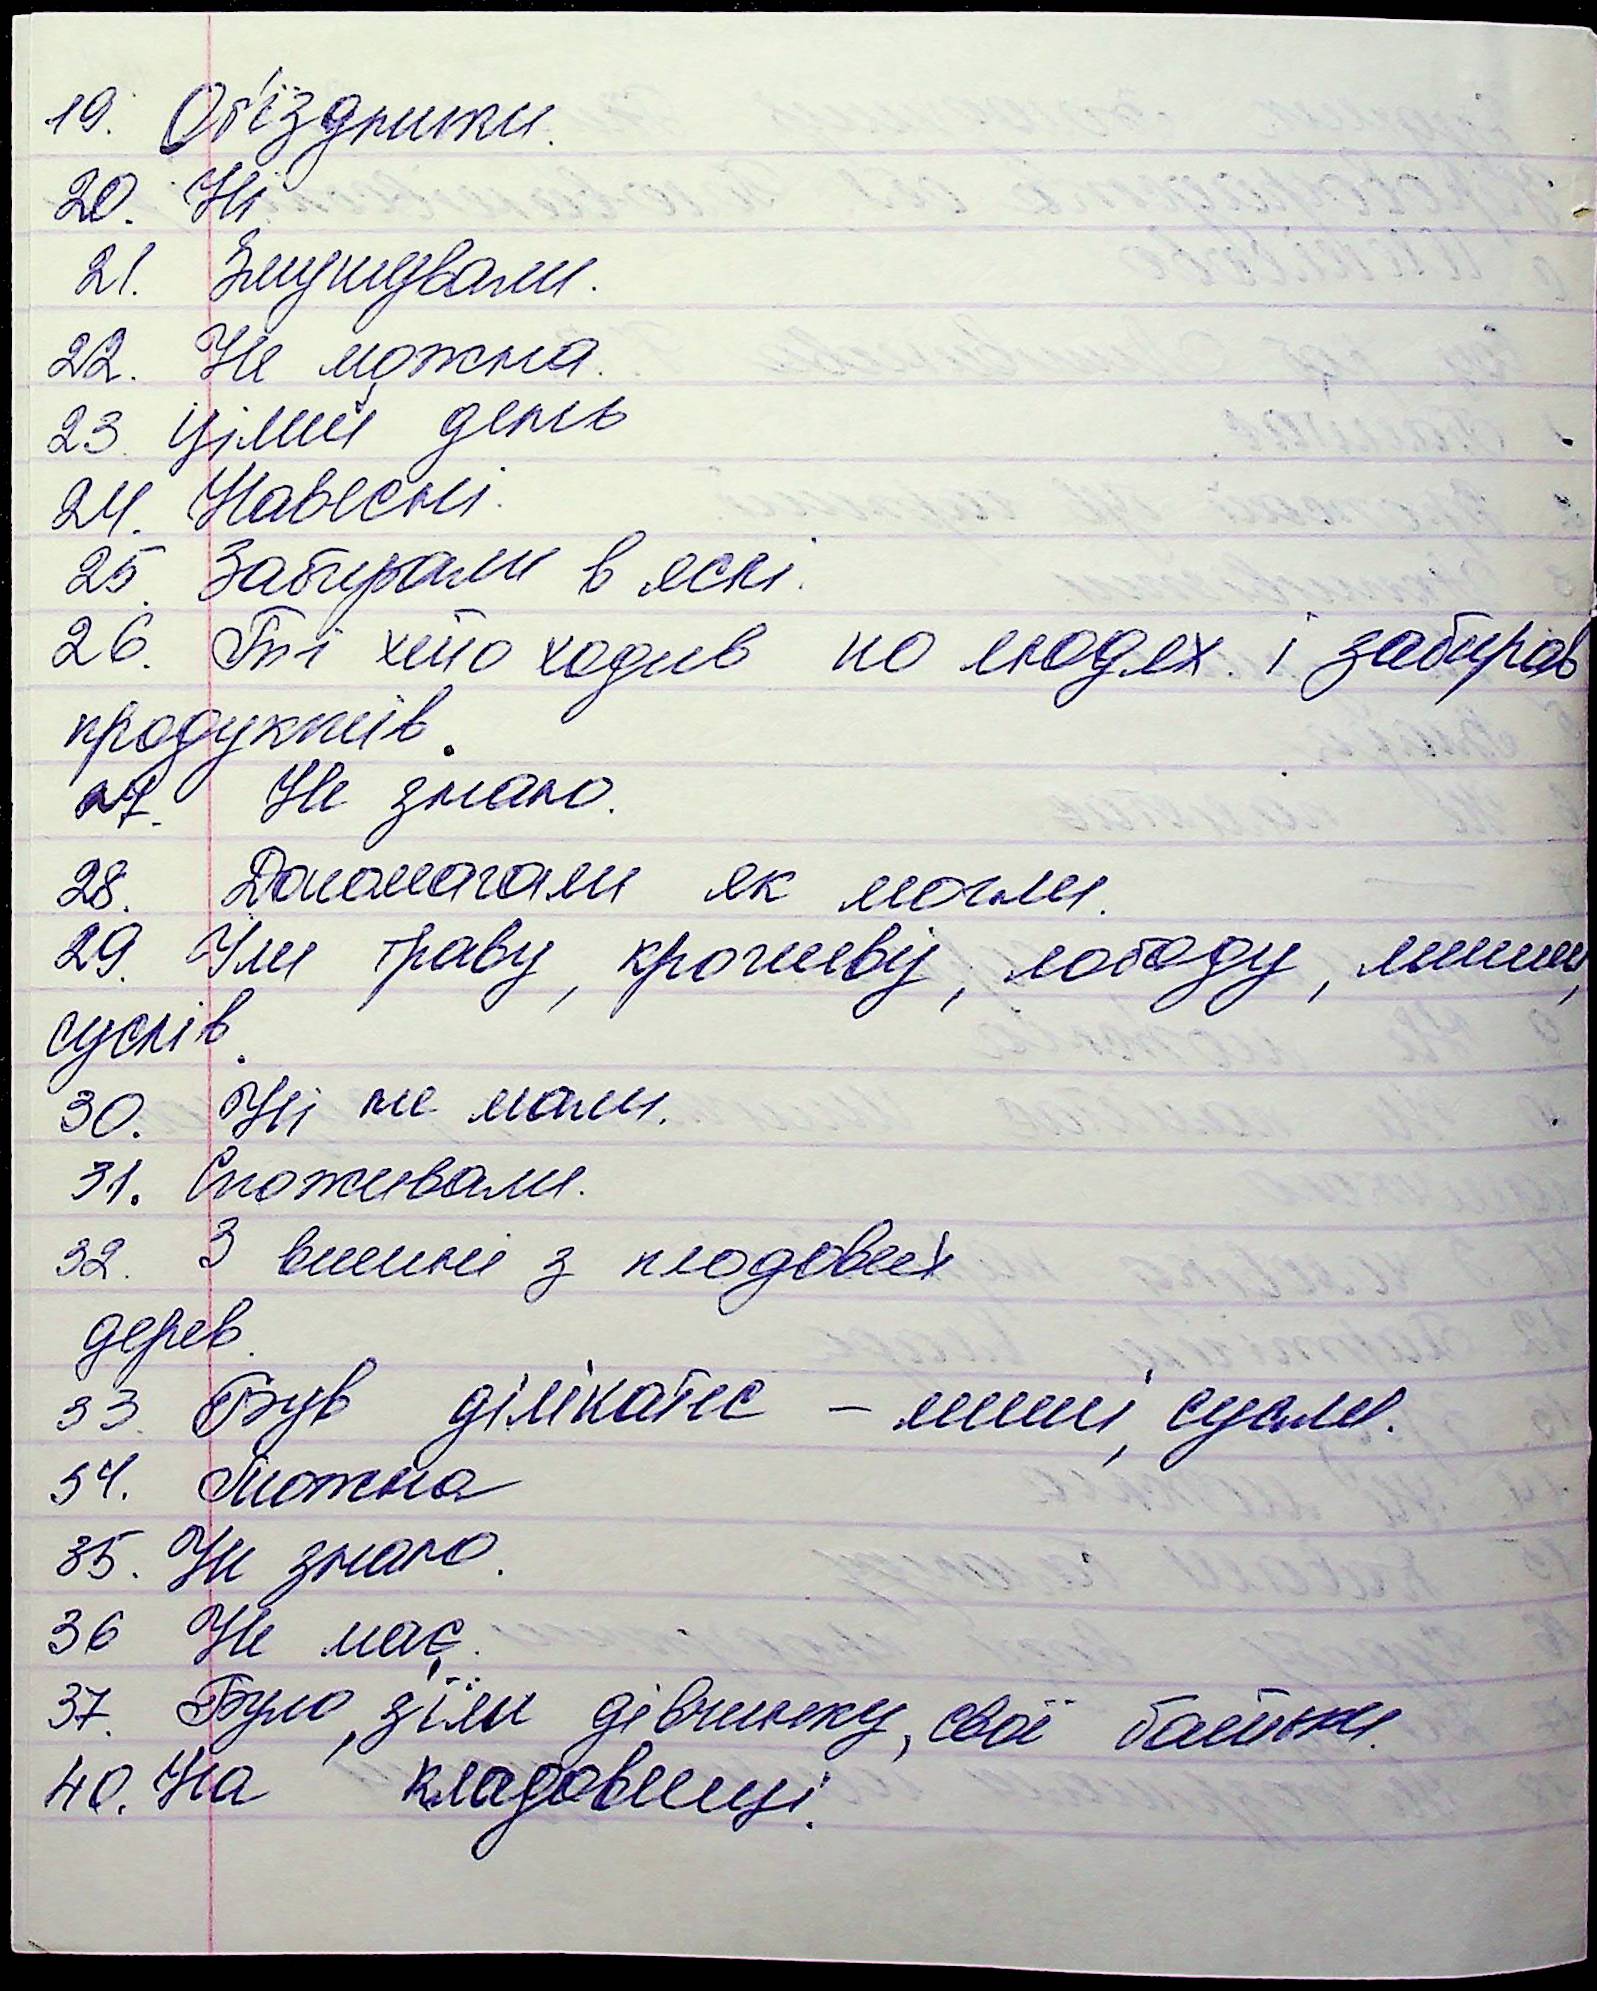 19. Об'їздники.
20. Ні
21. Змушували.
22. Не можна.
23. Цілий день
24. Навесні.
25. Забирали в яслі.
26. Ті хто ходив по людях і забирав
продуктів.
27. Не знаю.
28. Допомагали як могли.
29. Їли траву, крогиву, лободу, миши,
суслів.
30. Ні не мали.
31. Споживали.
32. З вишні з плодових
дерев.
33. Був ділікатес – миші, сусли.
34. Можна
35. Не знаю.
36 Не має.
37. Було, зїли дівчинку, свої батьки.
40. На кладовищі.